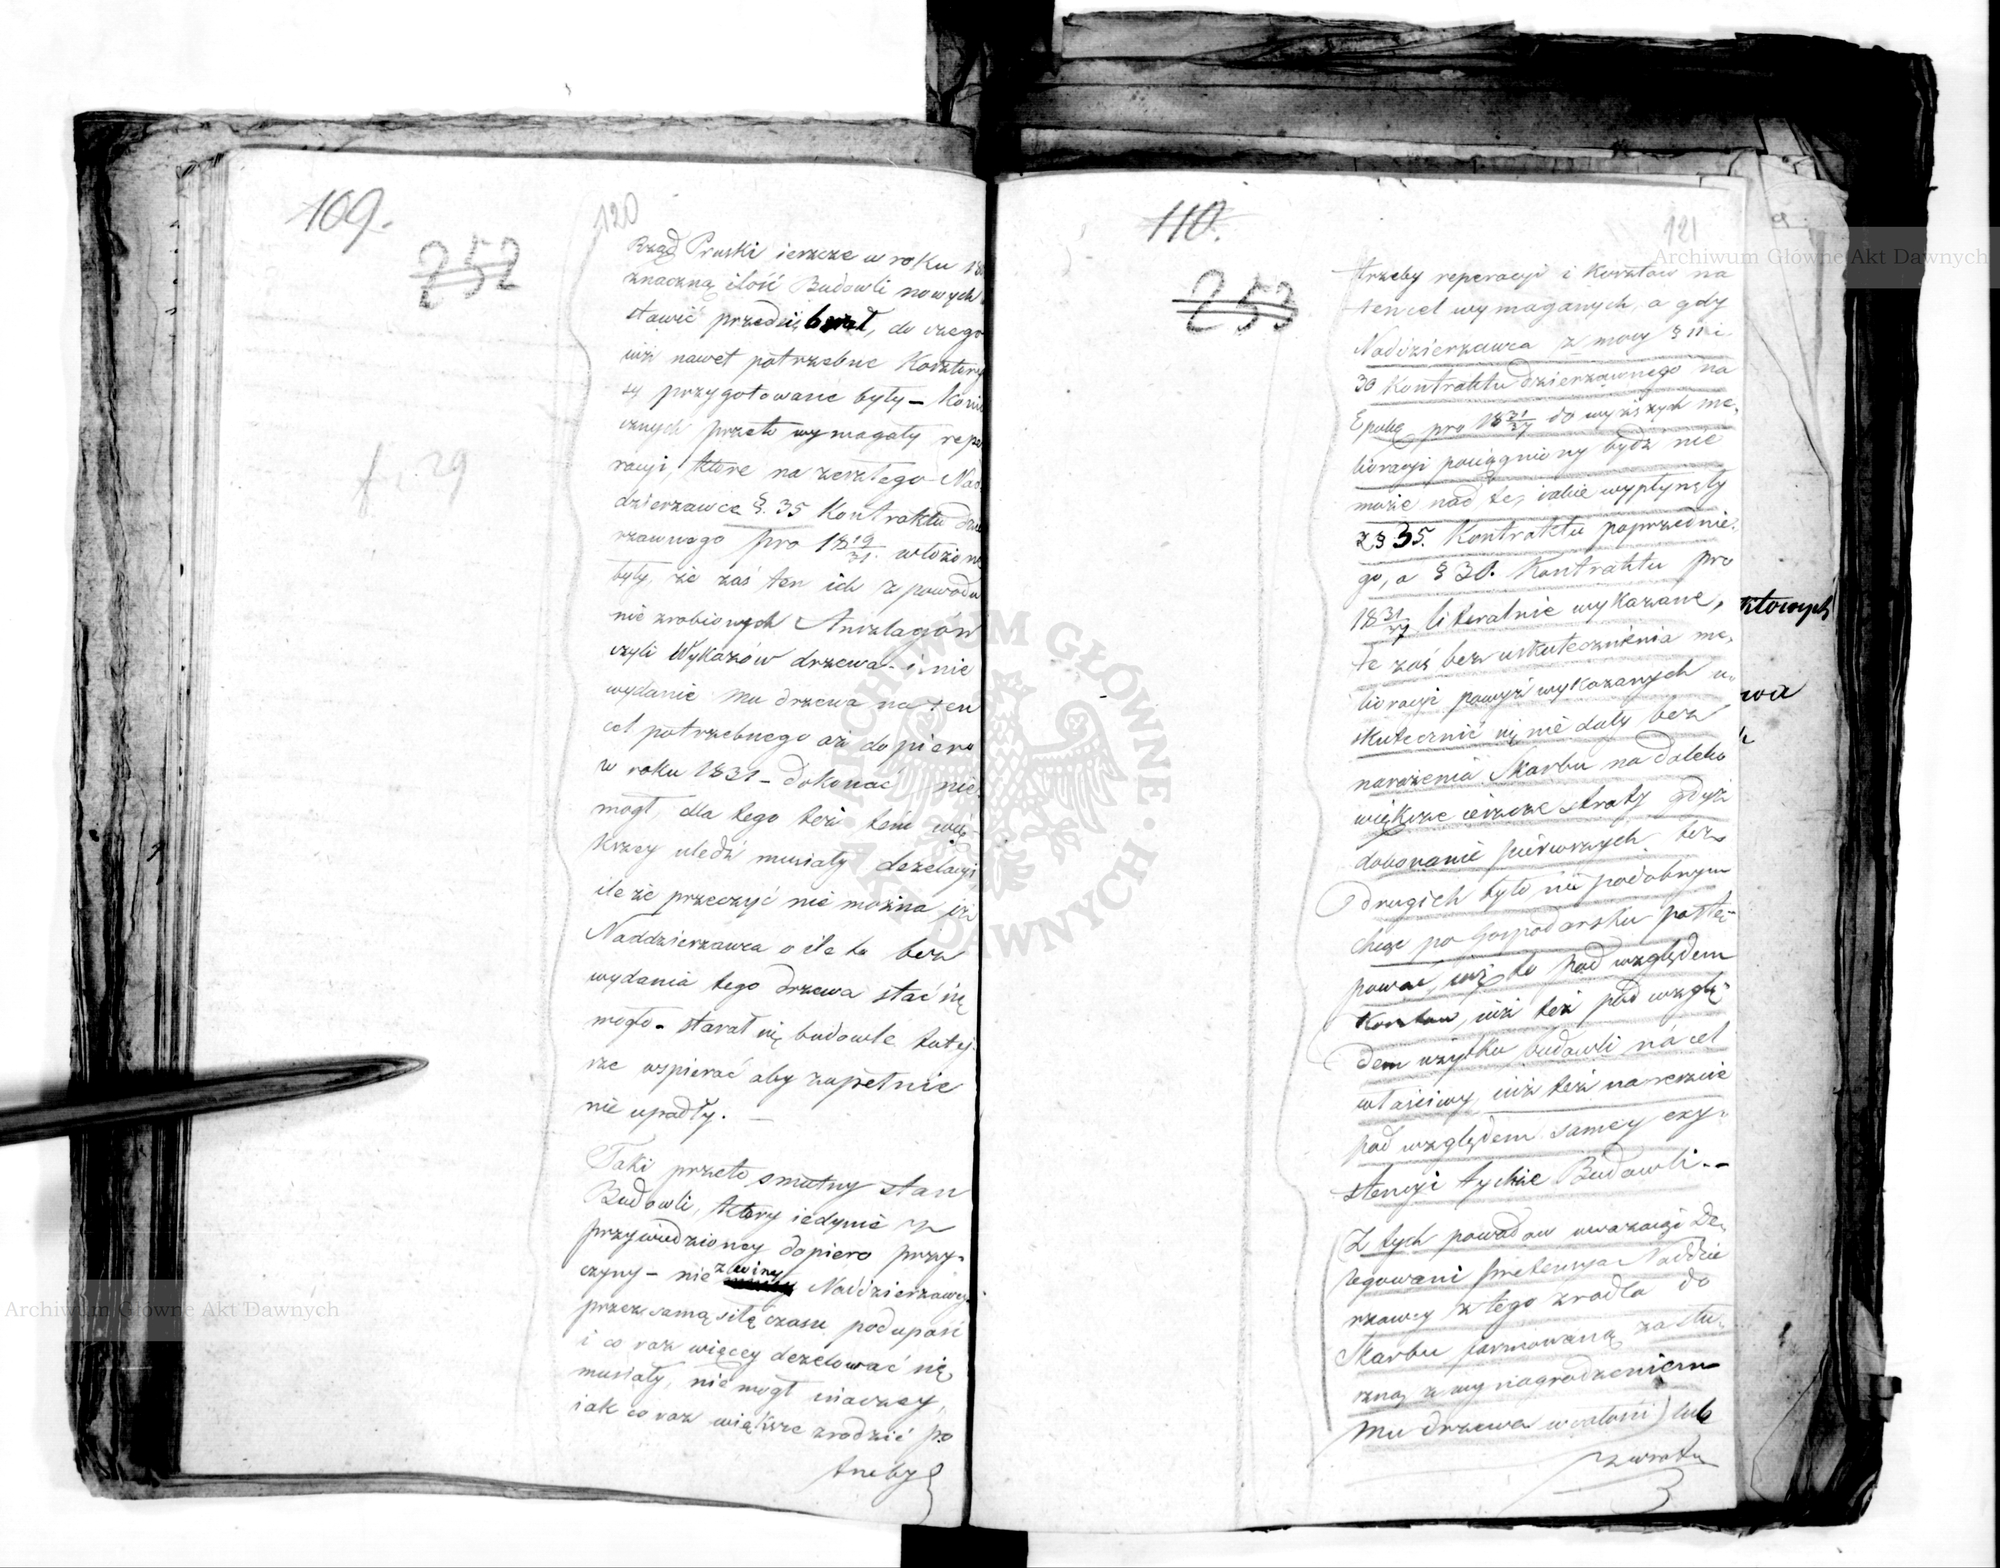 109.
252
120
Rząd Pruski ieszcze w roku 180
znaczną ilość Budowli nowych
stawić przedsiębrał, do czego
iuż nawet potrzebne Kosztory
sy przygotowane były – koni
cznych przeto wymagały repa
racyi, które na zeszłego Nad
dzierzawcę §. 35 Kontraktu dzie
rzawnego pro 18 19/31. włożone
były, że zaś ten ich z powodu
nie zrobionych Anszlagów
czyli Wykazów drzewa i nie
wydanie mu drzewa na ten
cel potrzebnego aż dopiero
w roku 1831 – dokonać nie
mogł, dla tego też tem wię-
kszey uledź musiały dezelacyi
ile że przeczyć nie można iż
Naddzierzawca o ile to bez
wydania tego drzewa stać się
mogło – starał się budowle tutey
sze wspierać aby zupełnie
nie upadły. —
Taki przeto smutny stan
Budowli, który iedynie z
przywiedzioney dopiero przy-
czyny – nie z winy Naddzierzawcy
przez samą siłę czasu podupaść
i co raz więcey dezelować się
musiały, nie mogł inaczey,
iak co raz większe zrodzić po
trzeby
fr. 29
110.
253
121
trzeby reperacyi i Kosztow na
ten cel wymaganych, a gdy
Naddzierzawca z mocy § 11 i
30 Kontraktu dzierzawnego na
Epokę pro 18 31/37 do wyższych me-
lioracyi pociągniony bydź nie
może nad te, iakie wypłynęły
z § 35. Kontraktu poprzednie-
go, a § 30. Kontraktu pro
18 31/37 literalnie wykazane,
te zaś bez uskutecznienia me-
lioracyi powyż wykazanych u-
skutecznić się nie dały bez
narażenia Skarbu na daleko
większe ieszcze straty gdyż
dokonanie pierwszych bez
drugich było nie podobnym
chcąc po Gospodarsku postę-
pować, iuż to pod względem
Kosztow, iuż też pod wzglę-
dem użytku budowli na cel
właściwy, iuż też nareszcie
pod względem samey exy-
stencyi tychże Budowli. –
Z tych powodow uważaiąc De-
legowani pretensya Naddzie
rzawcy z tego zrodła do
Skarbu formowaną za słu-
szną z wynagrodzeniem
mu drzewa w całości) lub
zwrotu
Archiwum Główne Akt Dawnych
Archiwum Główne Akt Dawnych
ARCHIWUM GŁÓWNE AKT DAWNYCH